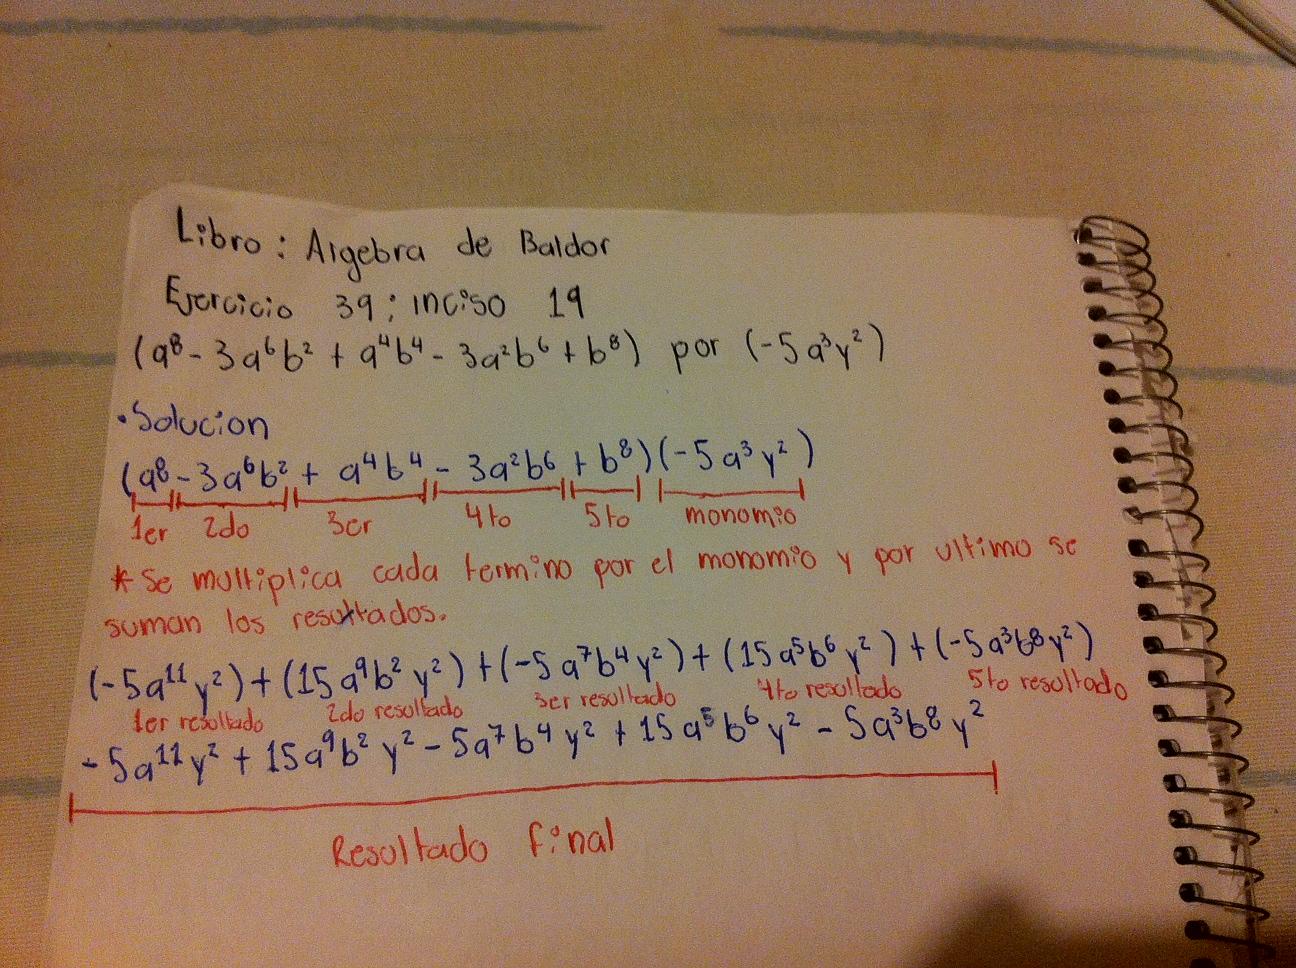 Libro: Algebra de Baldor
Ejercicio 39; inciso 19
(a⁸ - 3a⁶b² + a⁴b⁴ - 3a²b⁶ + b⁸) por (-5a³y²)
• Solucion
(a⁸ - 3a⁶b² + a⁴b⁴ - 3a²b⁶ + b⁸)(-5a³y²)
1er 2do 3er 4to 5to monomio
* Se multiplica cada termino por el monomio y por ultimo se
suman los resultados.
(-5a¹¹y²) + (15a⁹b²y²) + (-5a⁷b⁴y²) + (15a⁵b⁶y²) + (-5a³b⁸y²)
1er resultado 2do resultado 3er resultado 4to resultado 5to resultado
- 5a¹¹y² + 15a⁹b²y² - 5a⁷b⁴y² + 15a⁵b⁶y² - 5a³b⁸y²
Resultado final